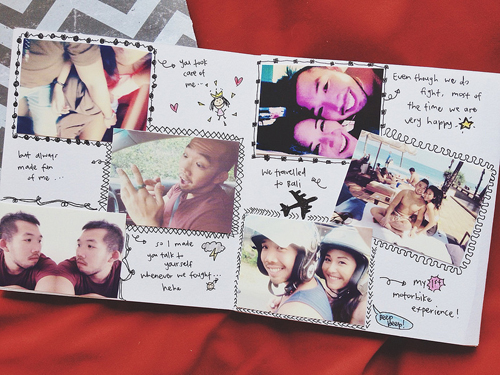 you took
care of
me...
but always
made fun
of me...
so I made
you talk to
yourself
whenever we fought...
hehe
Even though we do
fight, most of
the time we are
very happy
we travelled
to Bali
my 1st
motorbike
experience!
Beep
Beep!